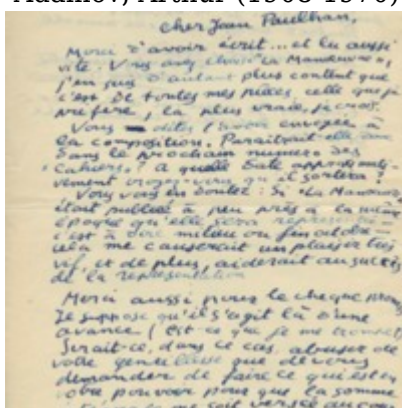 Adamov, Arthur (1908-1970)
cher Jean Paulhan,
Merci d'avoir écrit... et lu aussi
vite. Vous avez choisi "La Manœuvre",
j'en suis d'autant plus content que
c'est de toutes mes pièces, celle que je
préfère, la plus vraie, je crois.
Vous dites l'avoir envoyée à
la composition. Paraîtrait-elle
dans le prochain numéro des
Cahiers? A quelle date
vement croyez-vous qu'il sortira?
Vous vous en doutez: Si "La Manœuvre
était publiée à peu près à la même
époque qu'elle sera représentée
c'est à dire milieu ou fin
cela me causerait un plaisir très
vif et de plus, aiderait au succès
de la représentation
Merci aussi pour le chèque
Je suppose qu'il s'agit là d'une
avance (Est-ce que je me trompe?)
Serait-ce, dans ce cas, abuser de
votre gentillesse que de vous
demander de faire ce qui est en
votre pouvoir pour que la somme
me soit versée